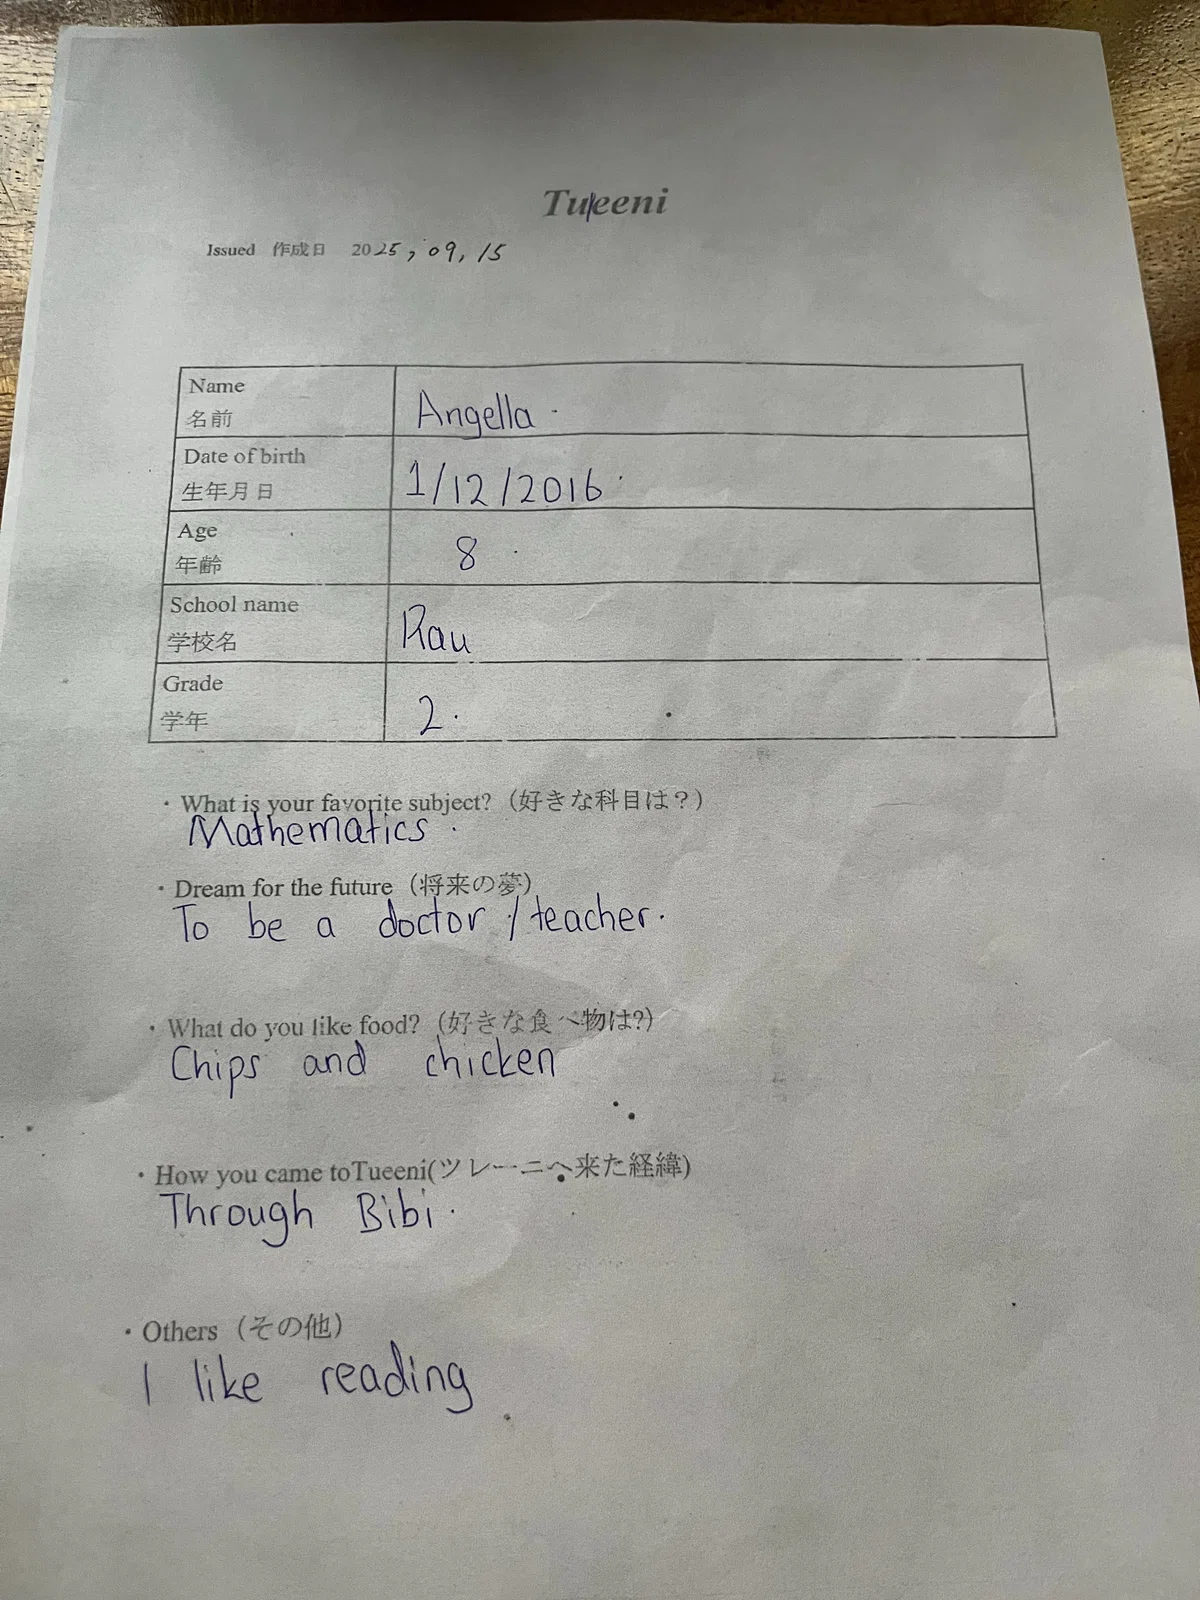 Tuleeni
Issued 作成日 2025, 09, 15
Name
名前
Angella.
Date of birth
生年月日
1/12/2016.
Age
年齢
8
School name
学校名
Rau
Grade
学年
2.
・What is your favorite subject?（好きな科目は？）
Mathematics.
・Dream for the future（将来の夢）
To be a doctor / teacher.
・What do you like food?（好きな食べ物は?）
Chips and chicken
・How you came toTueeni(ツレーニへ来た経緯)
Through Bibi.
・Others（その他）
I like reading